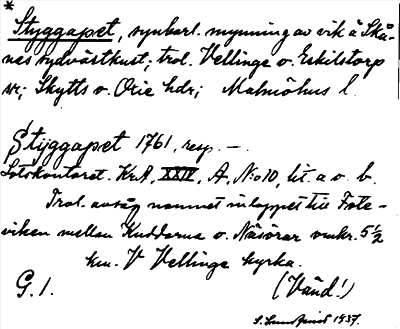 * Styggapet, synbarl. mynning av vik å Skå-
nes sydvästkust; trol. Vellinge o. Eskilstorp
sr; Skytts o. Oxie hdr; Malmöhus l.
Styggapet 1761, resp. —.
Lotskontoret. KrA, XXIV, A, No 10, lit. a o. b.
Trol. avsåg namnet inloppet till Fote-
viken mellan Kuddarna o. Näsörar omkr. 5 ½
km. V Vellinge kyrka.
G. 1. (Vänd!)
1937.